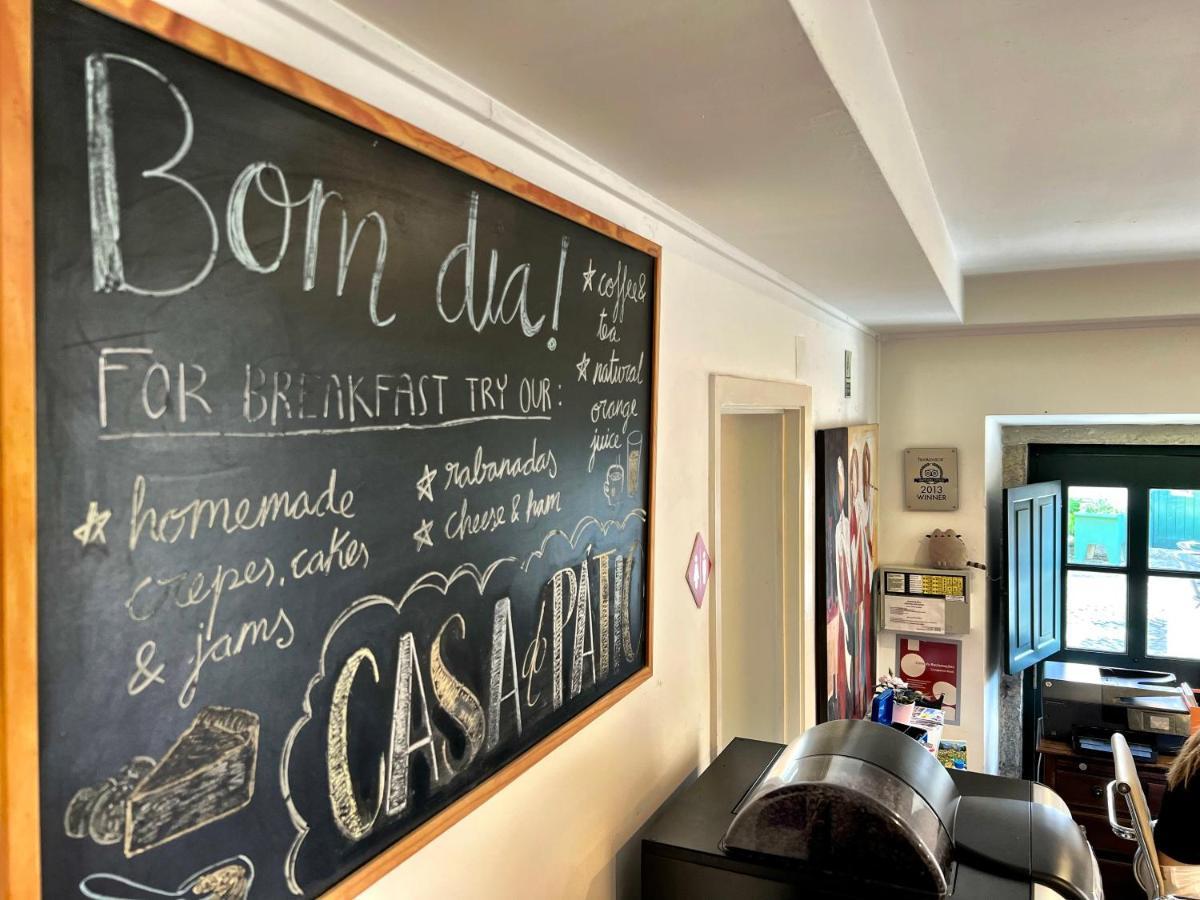 Bom dia!
FOR BREAKFAST TRY OUR:
☆ homemade
crepes, cakes
& jams
☆ rabanadas
☆ cheese & ham
☆ coffee &
tea
☆ natural
orange
juice
CASA do PÁTIO
2013
WINNER